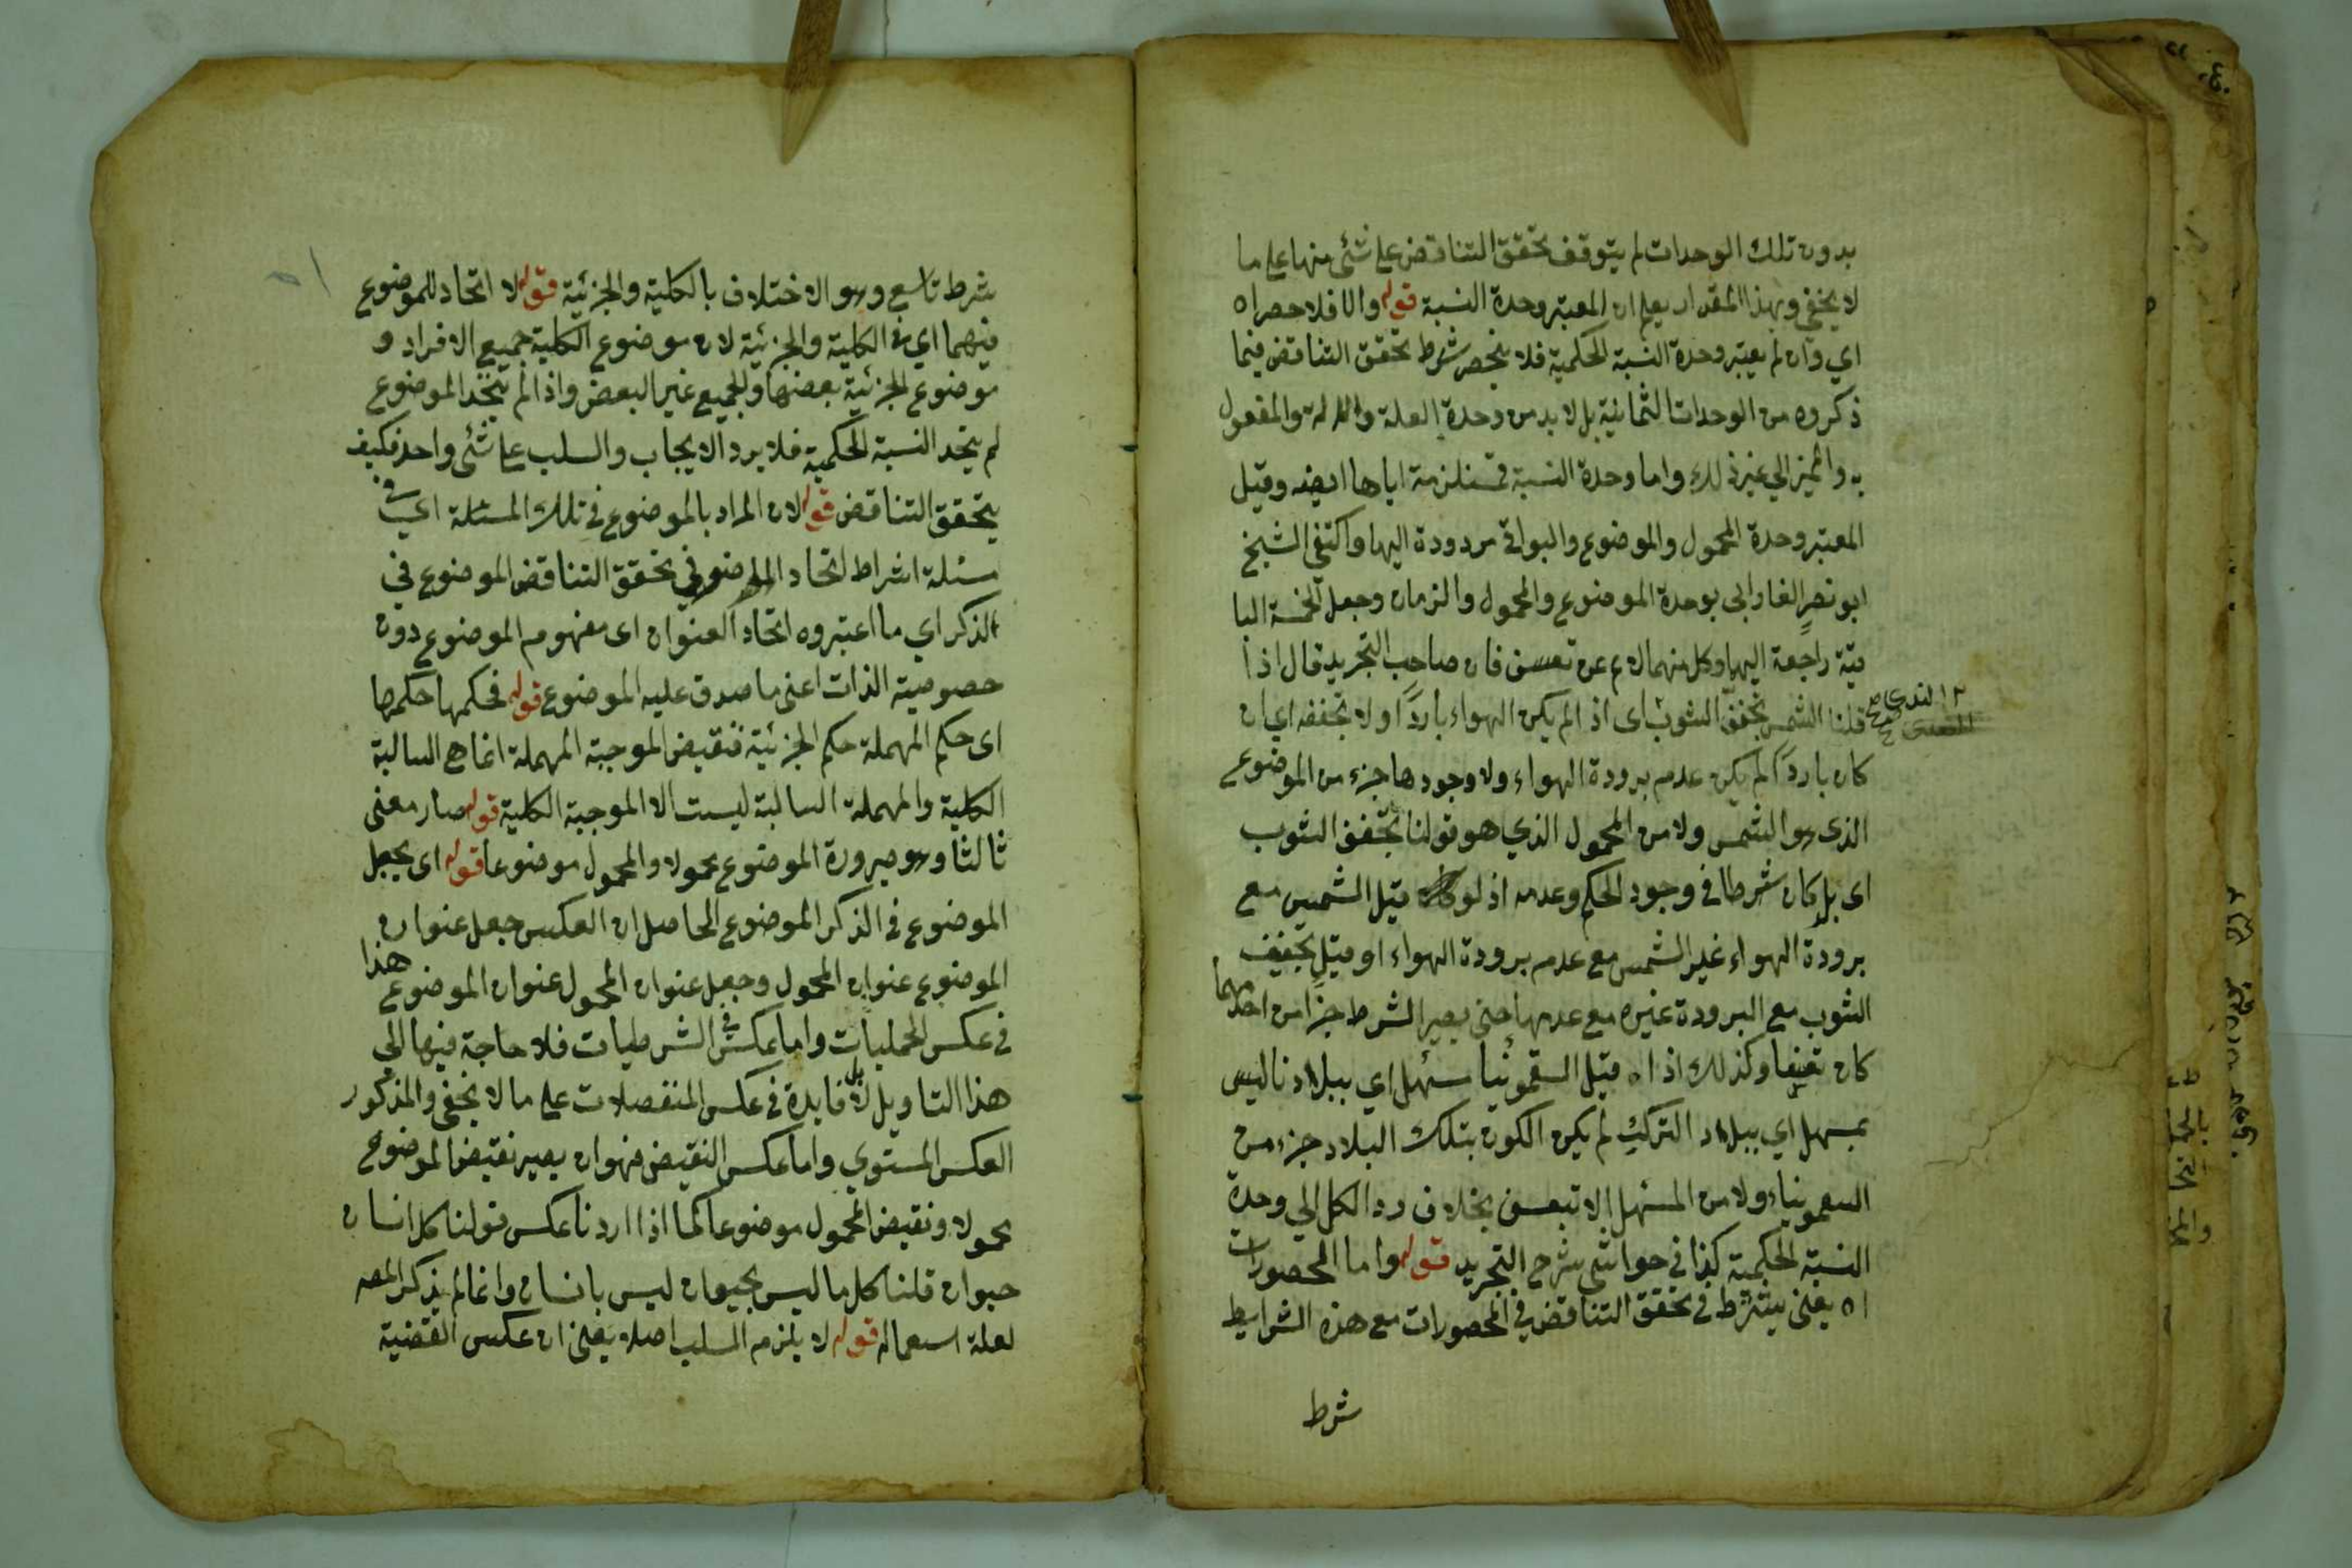 بدون تلك الوحدات لم يتوقف تحقق التناقض على شئ منها على ما
لا يخفى وبهذا المقدار يعلم ان المعتبر وحدة النسبة قوله والا فلا حصر اه
اي وان لم يعتبر وحدة النسبة الحكمية فلا ينحصر شرط تحقق التناقض فيما
ذكروه من الوحدات الثمانية بل لا بد من وحدة العلة والالة والمفعول
به والمميز الي غير ذلك واما وحدة النسبة فمستلزمة اياها ايضه وقيل
المعتبر وحدة المحمول والموضوع والبواقي مردودة اليها واكتفى الشيخ
ابو نصر الفارابي بوحدة الموضوع والمحمول والزمان وجعل الخمسة البا
قية راجعة اليها وكل منهما لا عن تعسف فان صاحب التجريد قال اذا
قلنا الشمس تجفف الثوب اى اذ الم يكن الهواء باردًا ولا تجففه اي ان
كان باردًا لم يكن عدم برودة الهواء ولا وجودها جزء من الموضوع
الذى هو الشمس ولا من المحمول الذي هو قولنا تجفف الثوب
اى بل كان شرطا في وجود الحكم وعدمه اذ لو قيل الشمس مع
برودة الهواء غير الشمس مع عدم برودة الهواء او قيل تجفيف
الثوب مع البرودة غيره مع عدمها حتى يصير الشرط جزأ من احدهما
كان تعسفا وكذلك اذا قيل السقمونيا مسهل اي ببلادنا ليس
بمسهل اي ببلاد الترك لم يكن الكون بتلك البلاد جزء من
السقمونياء ولا من المسهل الا بتعسف بخلاف رد الكل الي وحدة
النسبة الحكمية كذا في حواشي شرح التجريد قوله واما المحصورات
اه يعني يشترط في تحقق التناقض في المحصورات مع هذه الشرايط
شرط
شرط تاسع وهو الاختلاف بالكلية والجزئية قوله لا اتحاد للموضوع
فيهما اي في الكلية والجزئية لان موضوع الكلية جميع الافراد و
موضوع الجزئية بعضها والجميع غير البعض واذا لم يتحد الموضوع
لم يتحد النسبة الحكمية فلا يرد الايجاب والسلب على شئ واحد فكيف
يتحقق التناقض قوله لان المراد بالموضوع في تلك المسئلة اي في
مسئلة اشراط اتحاد الموضوع في تحقق التناقض الموضوع في
الذكر اي ما اعتبروه اتحاد العنوان اى مفهوم الموضوع دون
خصوصية الذات اعنى ما صدق عليه الموضوع قوله فحكمها حكمها
اى حكم المهملة حكم الجزئية فنقيض الموجبة المهملة انما هي السالبة
الكلية والمهملة السالبة ليست الا الموجبة الكلية قوله صار معنى
ثالثا وهو صيرورة الموضوع محمولا والمحمول موضوعا قوله اى يجعل
الموضوع في الذكر الموضوع الحاصل ان العكس جعل عنوان
الموضوع عنوان المحمول وجعل عنوان المحمول عنوان الموضوع هذا
في عكس الحمليات واما عكس في الشرطيات فلا حاجة فيها الي
هذا التاويل بل لا فايدة في عكس المنفصلات على ما لا يخفى والمذكور
العكس المستوي واما عكس النقيض فهو ان يصير نقيض الموضوع
محمولا ونقيض المحمول موضوعا كما اذا اردنا عكس قولنا كل انسان
حيوان قلنا كل ما ليس بحيوان ليس بانسان وانما لم يذكر المصه
لعلة استعماله قوله لا يلزم السلب اصلا يعنى ان عكس القضية